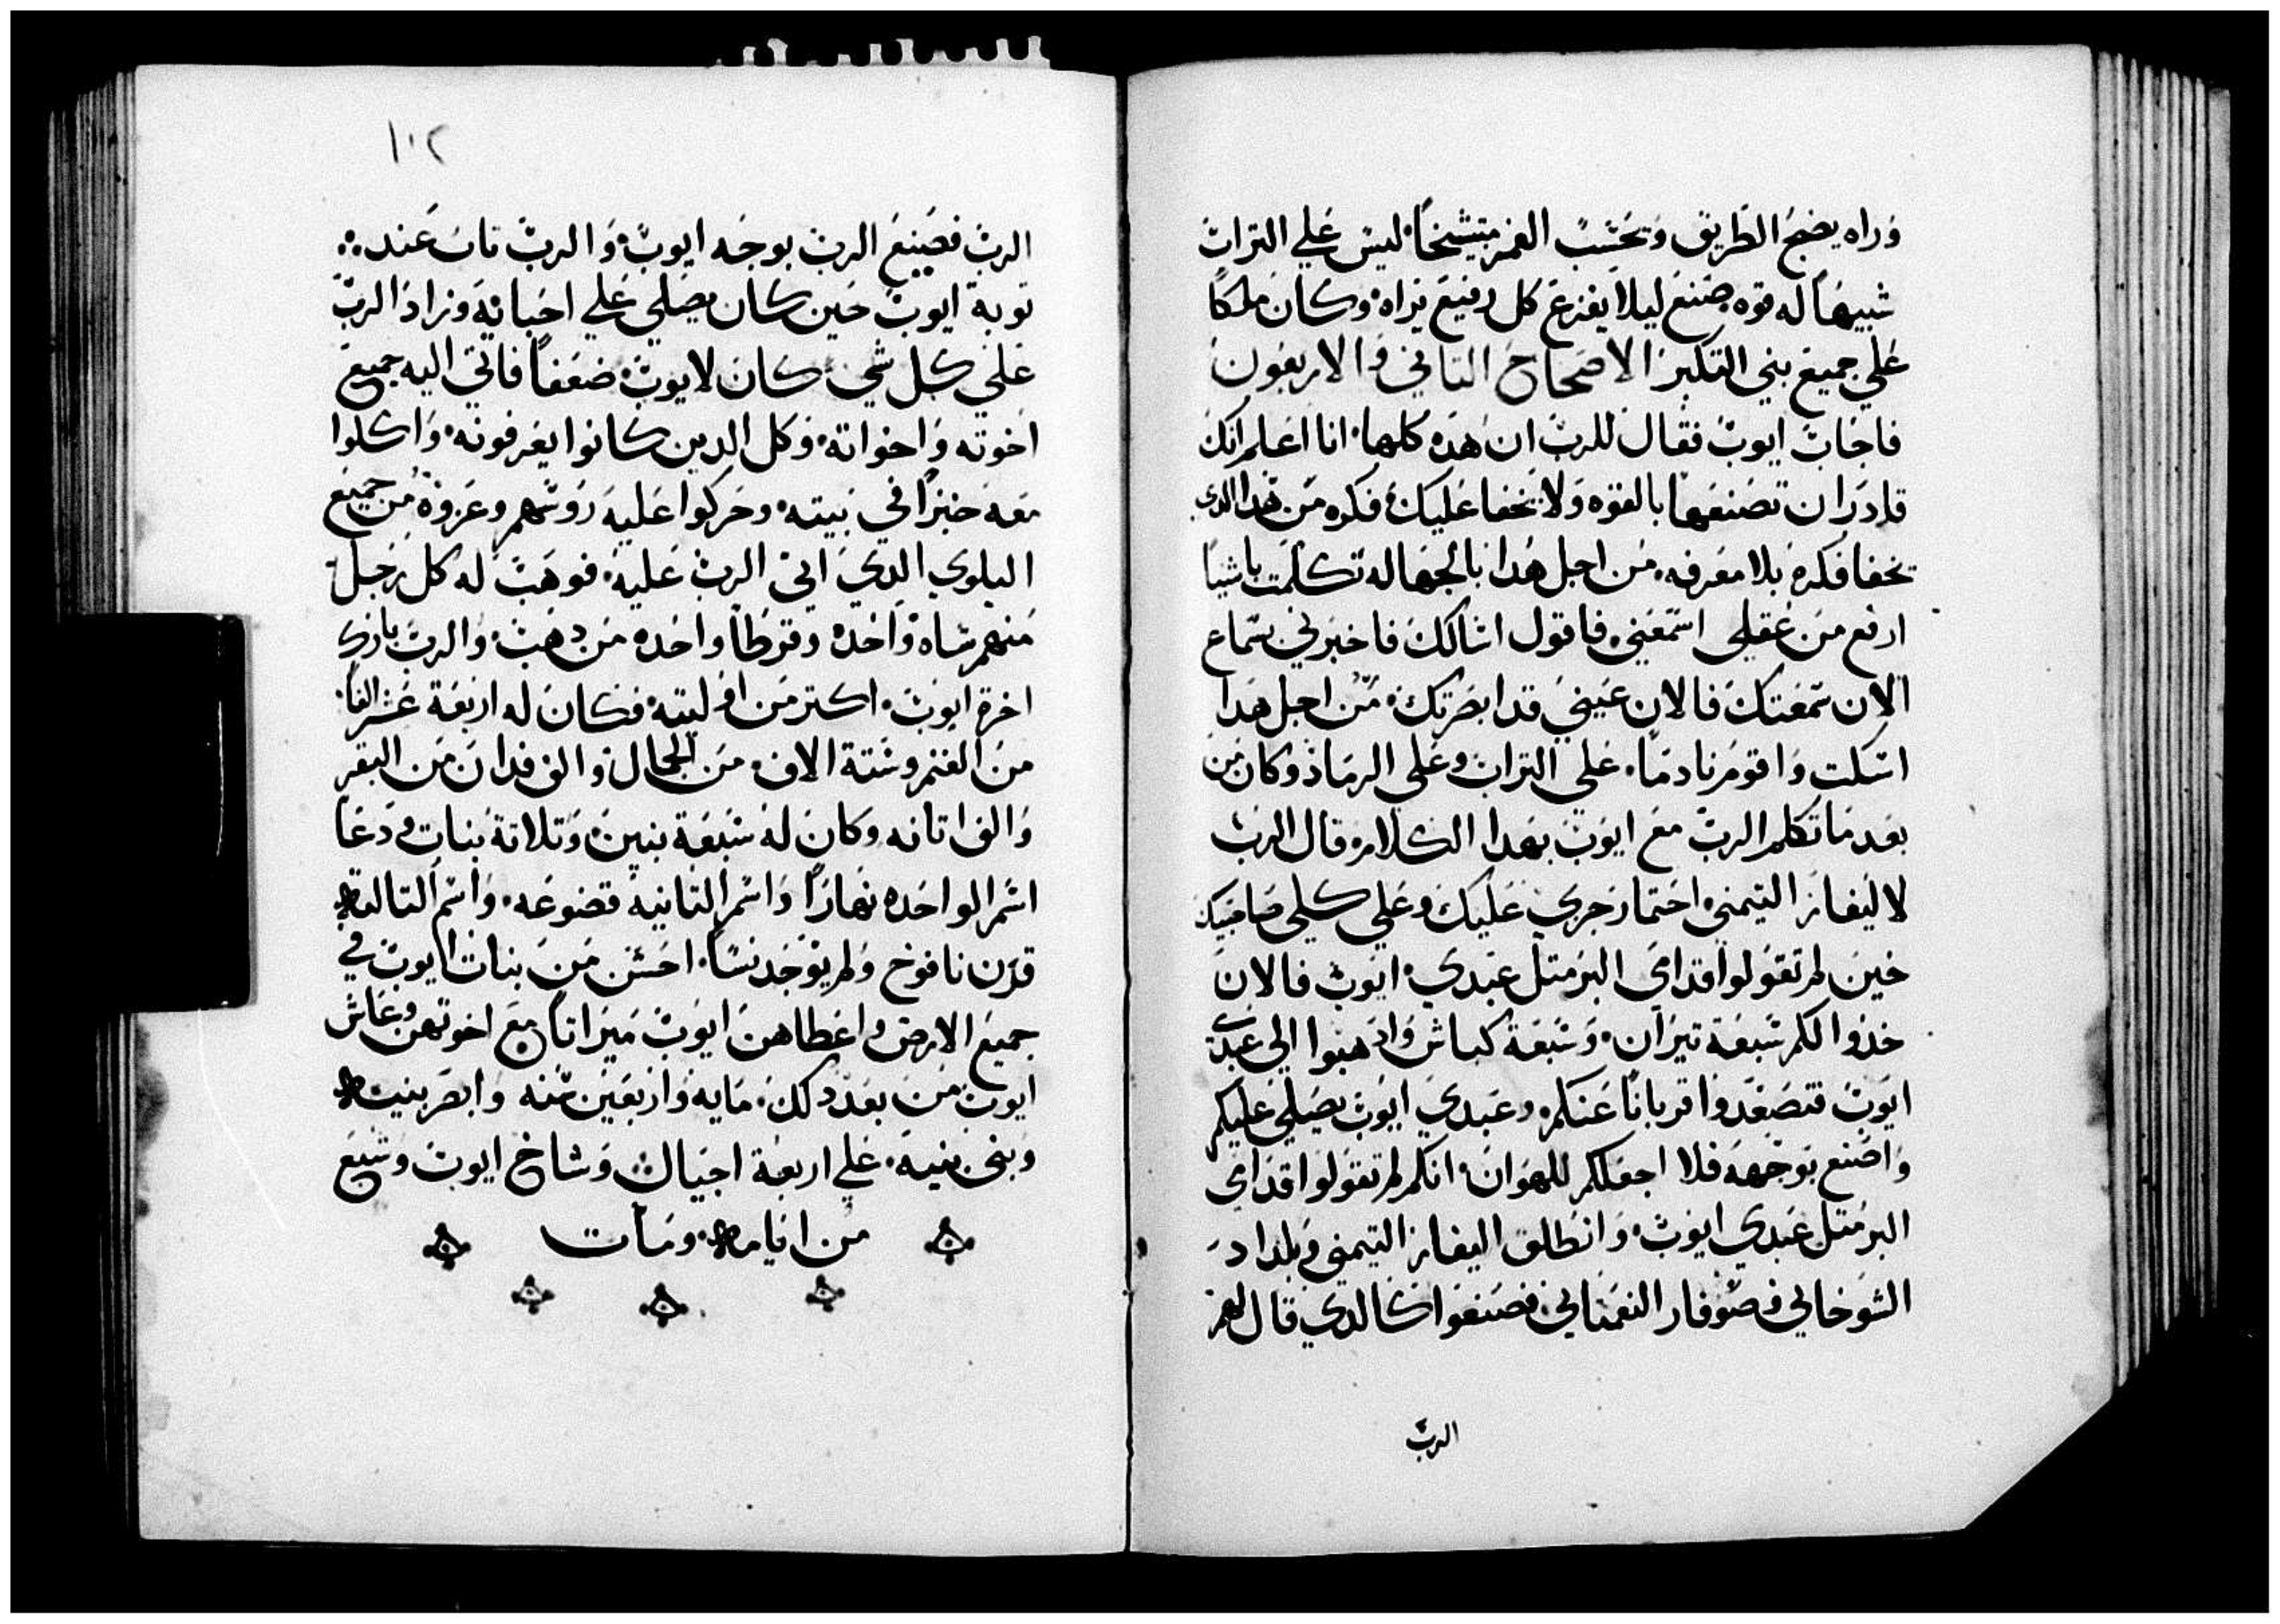 وراه يضج الطريق وتحسب الغمر متشيخاً ليس علي التراب
شبيهاً له قوه صنع ليلا يفزع كل رفيع يراه وكان ملكاً
علي جميع بني التكبر الاصحاح التاني والاربعون
فاجاب ايوب فقال للرب ان هده كلها انا اعلم انك
قادر ان تصنعها بالقوه ولا يخفا عليك فكره من هدا الدي
يخفا فكره بلا معرفه من اجل هدا بالجهاله تكلمت باشيا
ارفع من عقلي استمعني فاقول اسالك فاخبرني سماع
الان سمعتك فالان عيني قد ابصرتك من اجل هدا
اسكت واقوم نادماً علي التراب وعلي الرماد وكان من
بعد ما تكلم الرب مع ايوب بهدا الكلام قال الرب
لاليفاز التيمني احتما رجزي عليك وعلي كلي صاحبيك
حين لم تقولوا قداي البر متل عبدي ايوب فالان
خدوا لكم سبعة تيران وسبعة كباش وادهبوا الي عبدي
ايوب فتصعدوا قرباناً عنكم وعبدي ايوب يصلي عليكم
واصنع بوجهه فلا اجعلكم للهوان انكم لم تقولوا قداي
البر متل عبدي ايوب وانطلق اليفاز التيمني وبلداد
الشوخاني وصوفار النعماني فصنعوا كالدي قال لهم
الرب
١٠٢
الرب فصنع الرب بوجه ايوب والرب تاب عند
توبة ايوب حين كان يصلي علي احبايه وزاد الرب
علي كل شي كان لايوب ضعفاً فاتي اليه جميع
اخوته واخواته وكل الدين كانوا يعرفونه واكلوا
معه خبزاً في بيته وحركوا عليه روسهم وعزوه من جميع
البلوي الدي اتي الرب عليه فوهب له كل رجل
منهم شاه واحده وقرطاً واحده من دهب والرب بارك
اخرة ايوب اكتر من اوليته فكان له اربعة عشر الفاً
من الغنم وستة الاف من الجمال والف فدان من البقر
والف اتانه وكان له سبعة بنين وتلاتة بنات ودعا
اسم الواحده نهاراً واسم التانية قضوعه واسم التالته
قرن نافوخ ولم يوجد نساً احسن من بنات ايوب في
جميع الارض واعطاهن ايوب ميراتاً مع اخوتهن وعاش
ايوب من بعد دلك مايه واربعين سنه وابصر بنيه
وبني بنيه علي اربعة اجيال وشاخ ايوب وشبع
من ايامه ومات